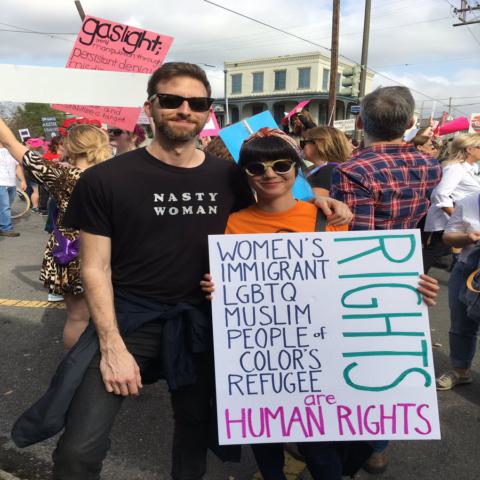 gaslight:
manipulation through
persistent denial
NASTY
WOMAN
WOMEN'S
IMMIGRANT
LGBTQ
MUSLIM
PEOPLE of
COLOR'S
REFUGEE
RIGHTS
are
HUMAN RIGHTS